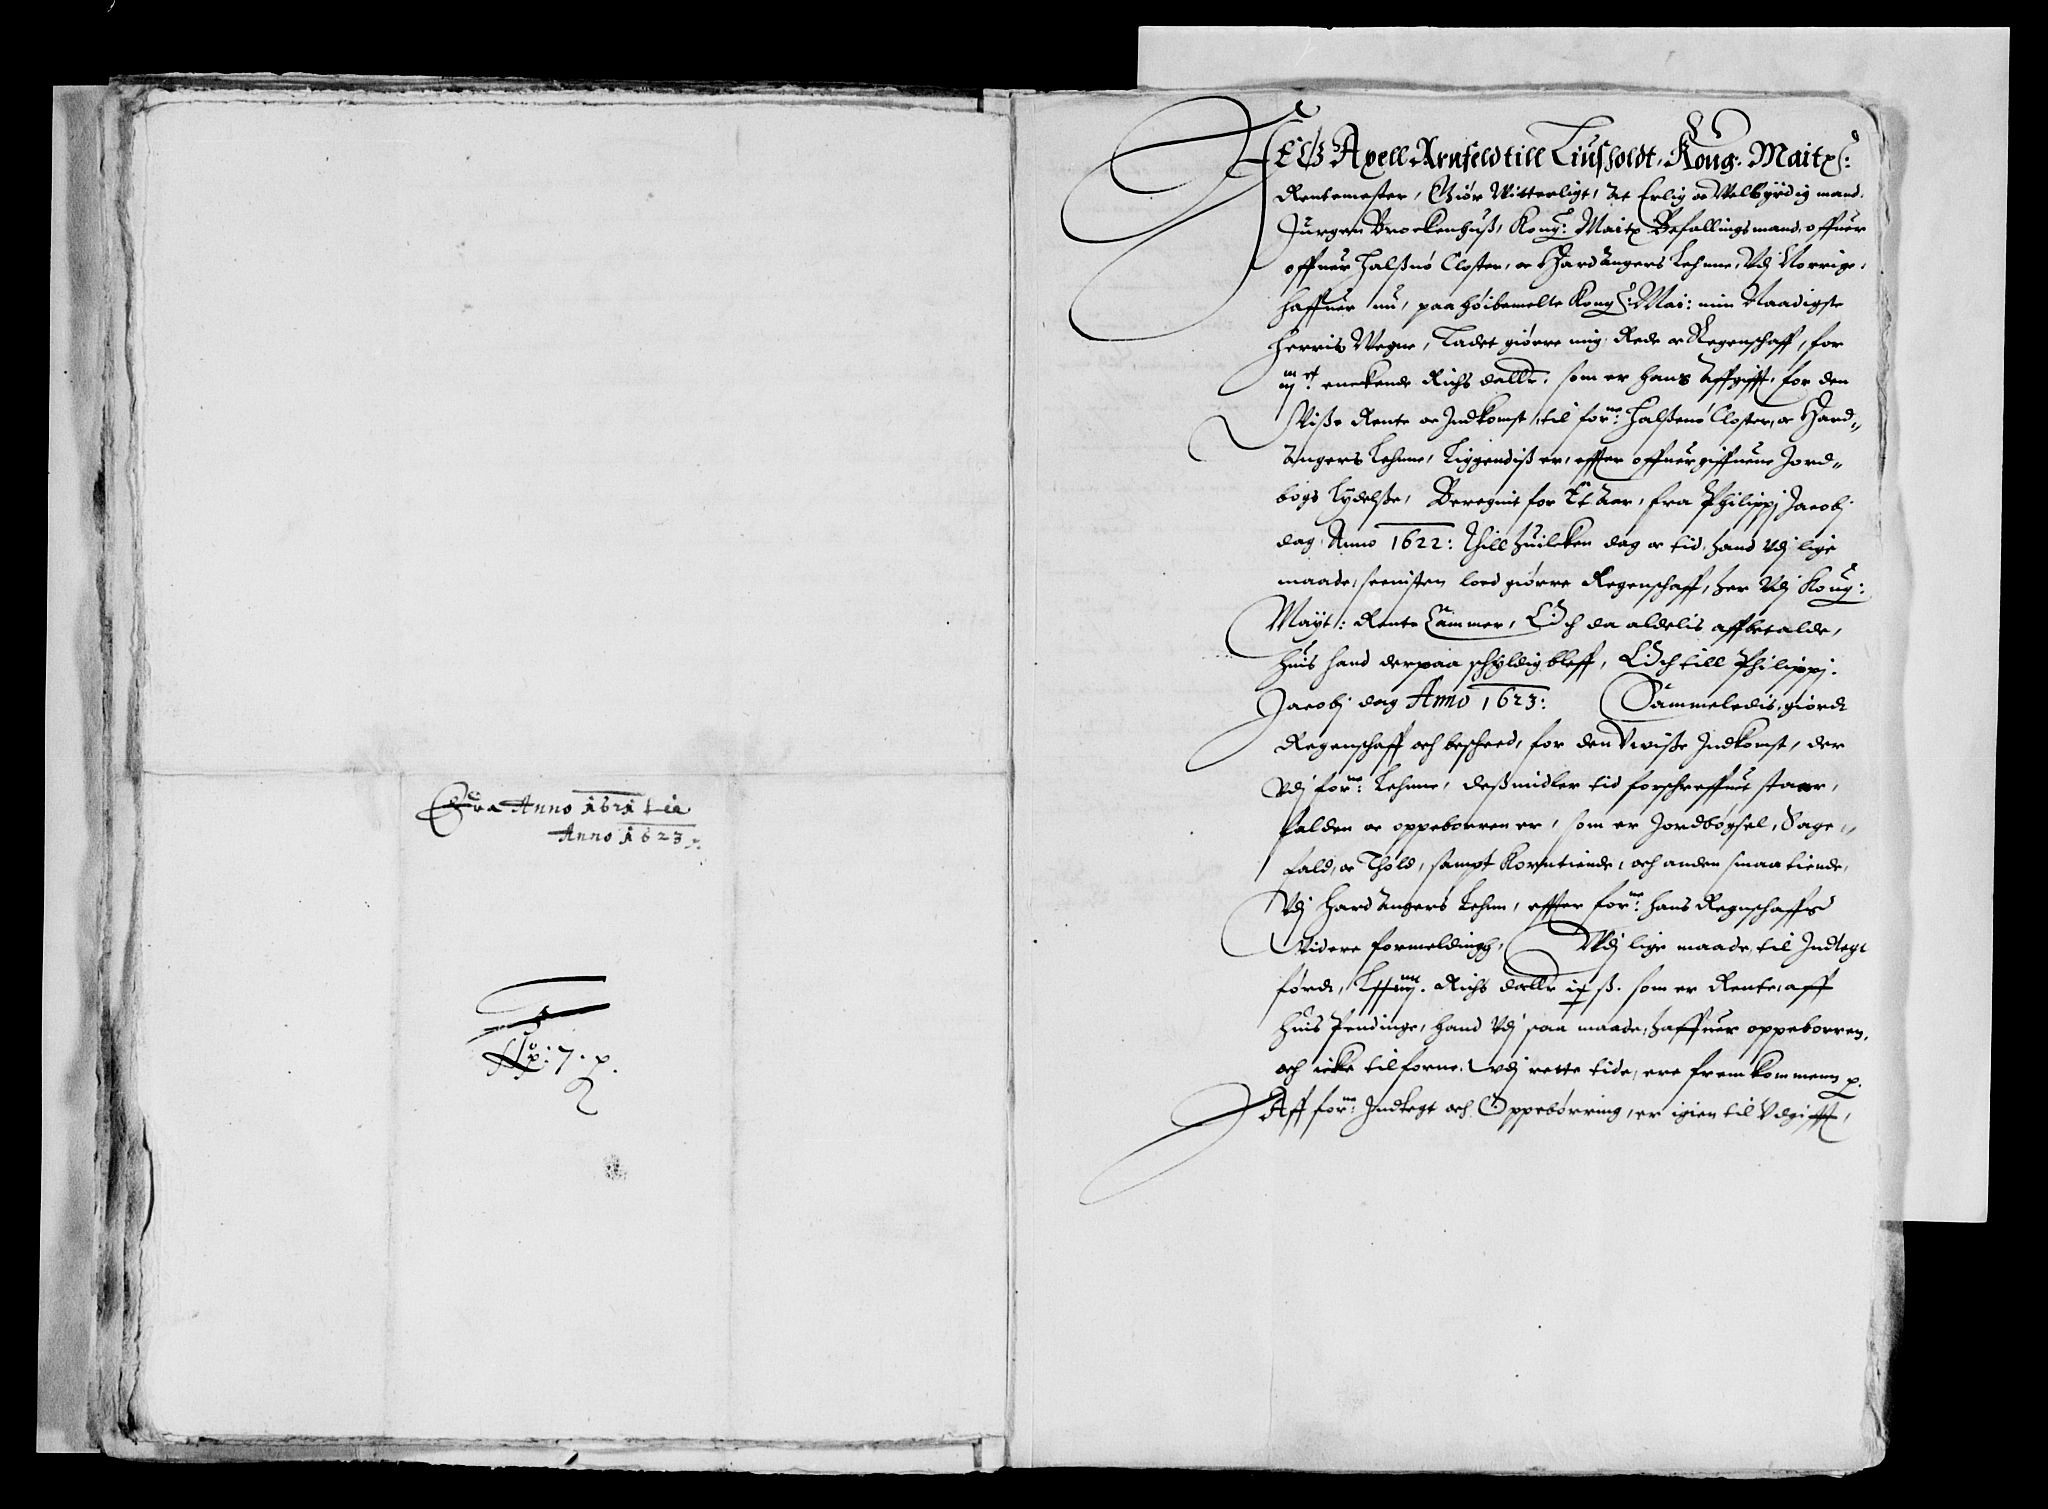 Fra Anno 1621 til
Anno 1623
No: 7.
JEG Axell Arnfeld till Liusholdt, Kong: Maitz:
Rentemester, Giör Witterligt, At Erlig oc Welbyrdig mand.
Jürgen Brockenhuß, Kong: Maitz Befallingsmand, offuer
offuer Halßnö Closter, oc Hardangers Lehnne, Udj Norrige,
haffuer nu, paa höibemelte Kong: Mai: min Naadigste
Herris Wegne, Ladet giörre mig Rede oc Regenschaff, for
enckende Richs dallr, som er hans Affgifft, for den
Wiße Rente oc Indkomst, til forne: Halßenö Closter, oc Hard„
Angers Lehnne, Liggendiß er, effter offuergiffuene Jord„
bogs Lydelße, Beregnit for Et Aar, fra Philippj Jacobj
dag Anno 1622: Thill huilcken dag oc tid, hand Udj lige
maade, seenisten loed giörre Regenschaff, her Udj Kong:
Mayt: Rente Cammer, Och da aldelis affbetalde,
huis hand derpaa schyldig bleff, Och till Philippj
Jacobj dag Anno 1623: Sammeledis, giordt
Regenschaff och bescheed, for den Uwiße Indkomst, der
Udj forne: Lehnne, deßmidler tid forschreffuet staar,
falden oc oppeborren er, som er Jordbögsel, Sage„
fald, oc Thold, sampt Korntiende, och anden smaa tiende,
Udj Hardangers Lehnn, effter forne: hans Regnschaffs
Videre formelding, Udj lige maade, til Indtegt
fördt, Richs dallr ß. som er Rente, aff
huis Pendinge, hand Udj saa maade, haffuer oppeborren,
och icke tilforne, Udj rette tide, ere fremkommenn
Aff forne: Indtegt och Oppebörring, er igien til Udgifft,